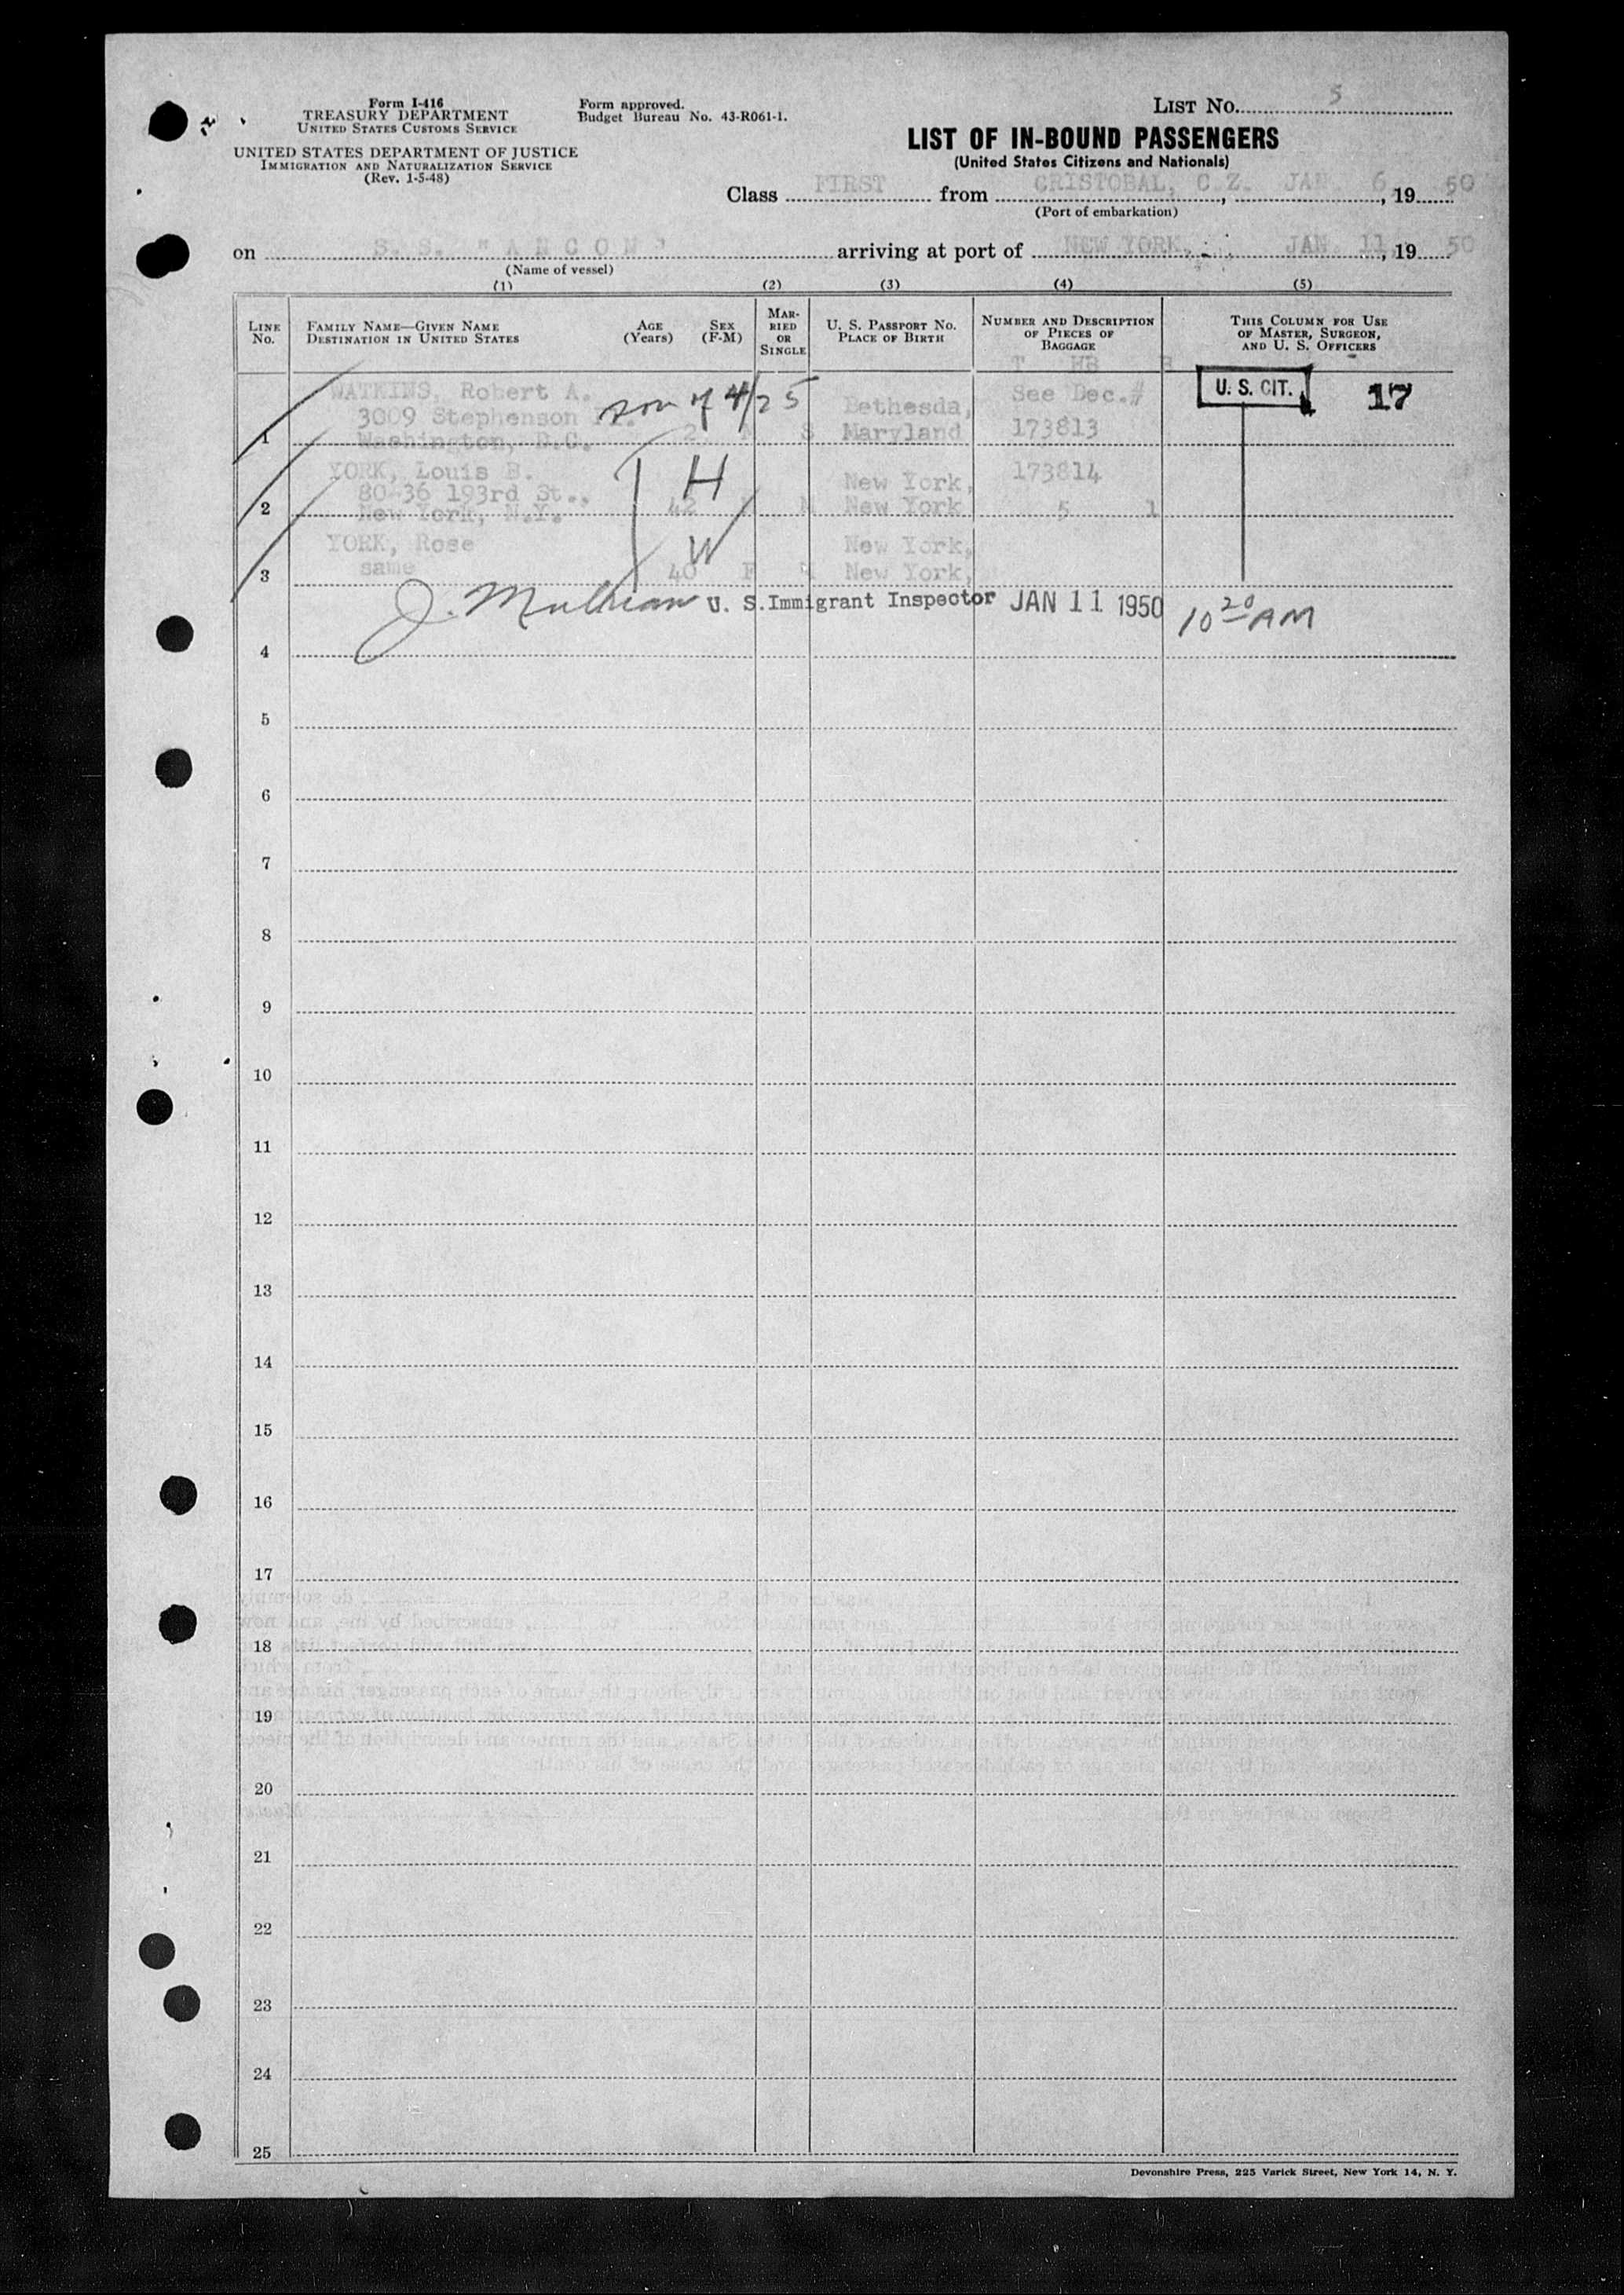 Form I-416
TREASURY DEPARTMENT
UNITED STATES CUSTOMS SERVICE
UNITED STATES DEPARTMENT OF JUSTICE
IMMIGRATION AND NATURALIZATION SERVICE
(Rev. 1-5-48)
Form approved.
Budget Bureau No. 43-R061-1.
LIST NO. 5
LIST OF IN-BOUND PASSENGERS
(United States Citizens and Nationals)
Class FIRST from CRISTOBAL, C.Z. JAN. 6, 1950
(Port of embarkation)
on S. S. "ANCON" arriving at port of NEW YORK, JAN. 11, 1950
(Name of vessel)
(1) (2) (3) (4) (5)
LINE No.
FAMILY NAME—GIVEN NAME
DESTINATION IN UNITED STATES
AGE (Years)
SEX (F-M)
MARRIED OR SINGLE
U. S. PASSPORT NO.
PLACE OF BIRTH
NUMBER AND DESCRIPTION OF PIECES OF BAGGAGE
THIS COLUMN FOR USE OF MASTER, SURGEON, AND U. S. OFFICERS
T HB B
WATKINS, Robert A. See Dec.# U. S. CIT. 17
3009 Stephenson son of 4/25 Bethesda,
1 Washington, D.C. 2 M S Maryland 173813
YORK, Louis B. H New York, 173814
80-36 193rd St.,
2 New York, N.Y. 42 M New York 5 1
YORK, Rose W New York,
3 same 40 F M New York,
U. S. Immigrant Inspector JAN 11 1950 10 20 AM
4
5
6
7
8
9
10
11
12
13
14
15
16
17
18
19
20
21
22
23
24
25
Devonshire Press, 225 Varick Street, New York 14, N. Y.